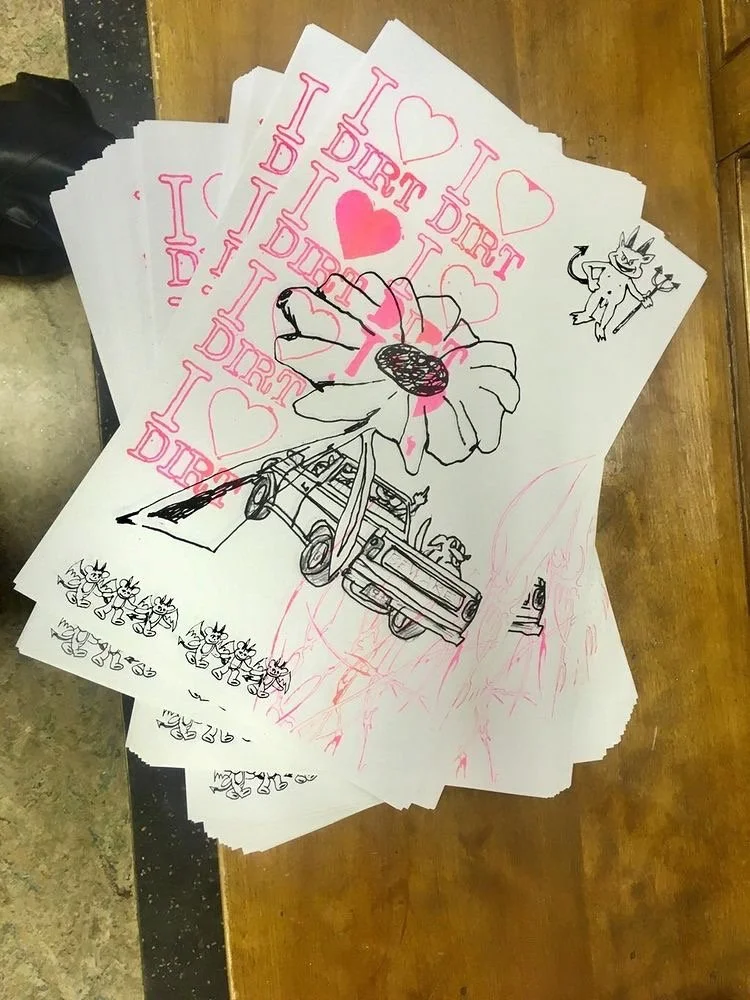 I ♡ I ♡
DIRT DIRT
I ♥ I ♡
DIRT DIRT
I ♡ I
DIRT
I ♡
DIRT
I
D
I
D